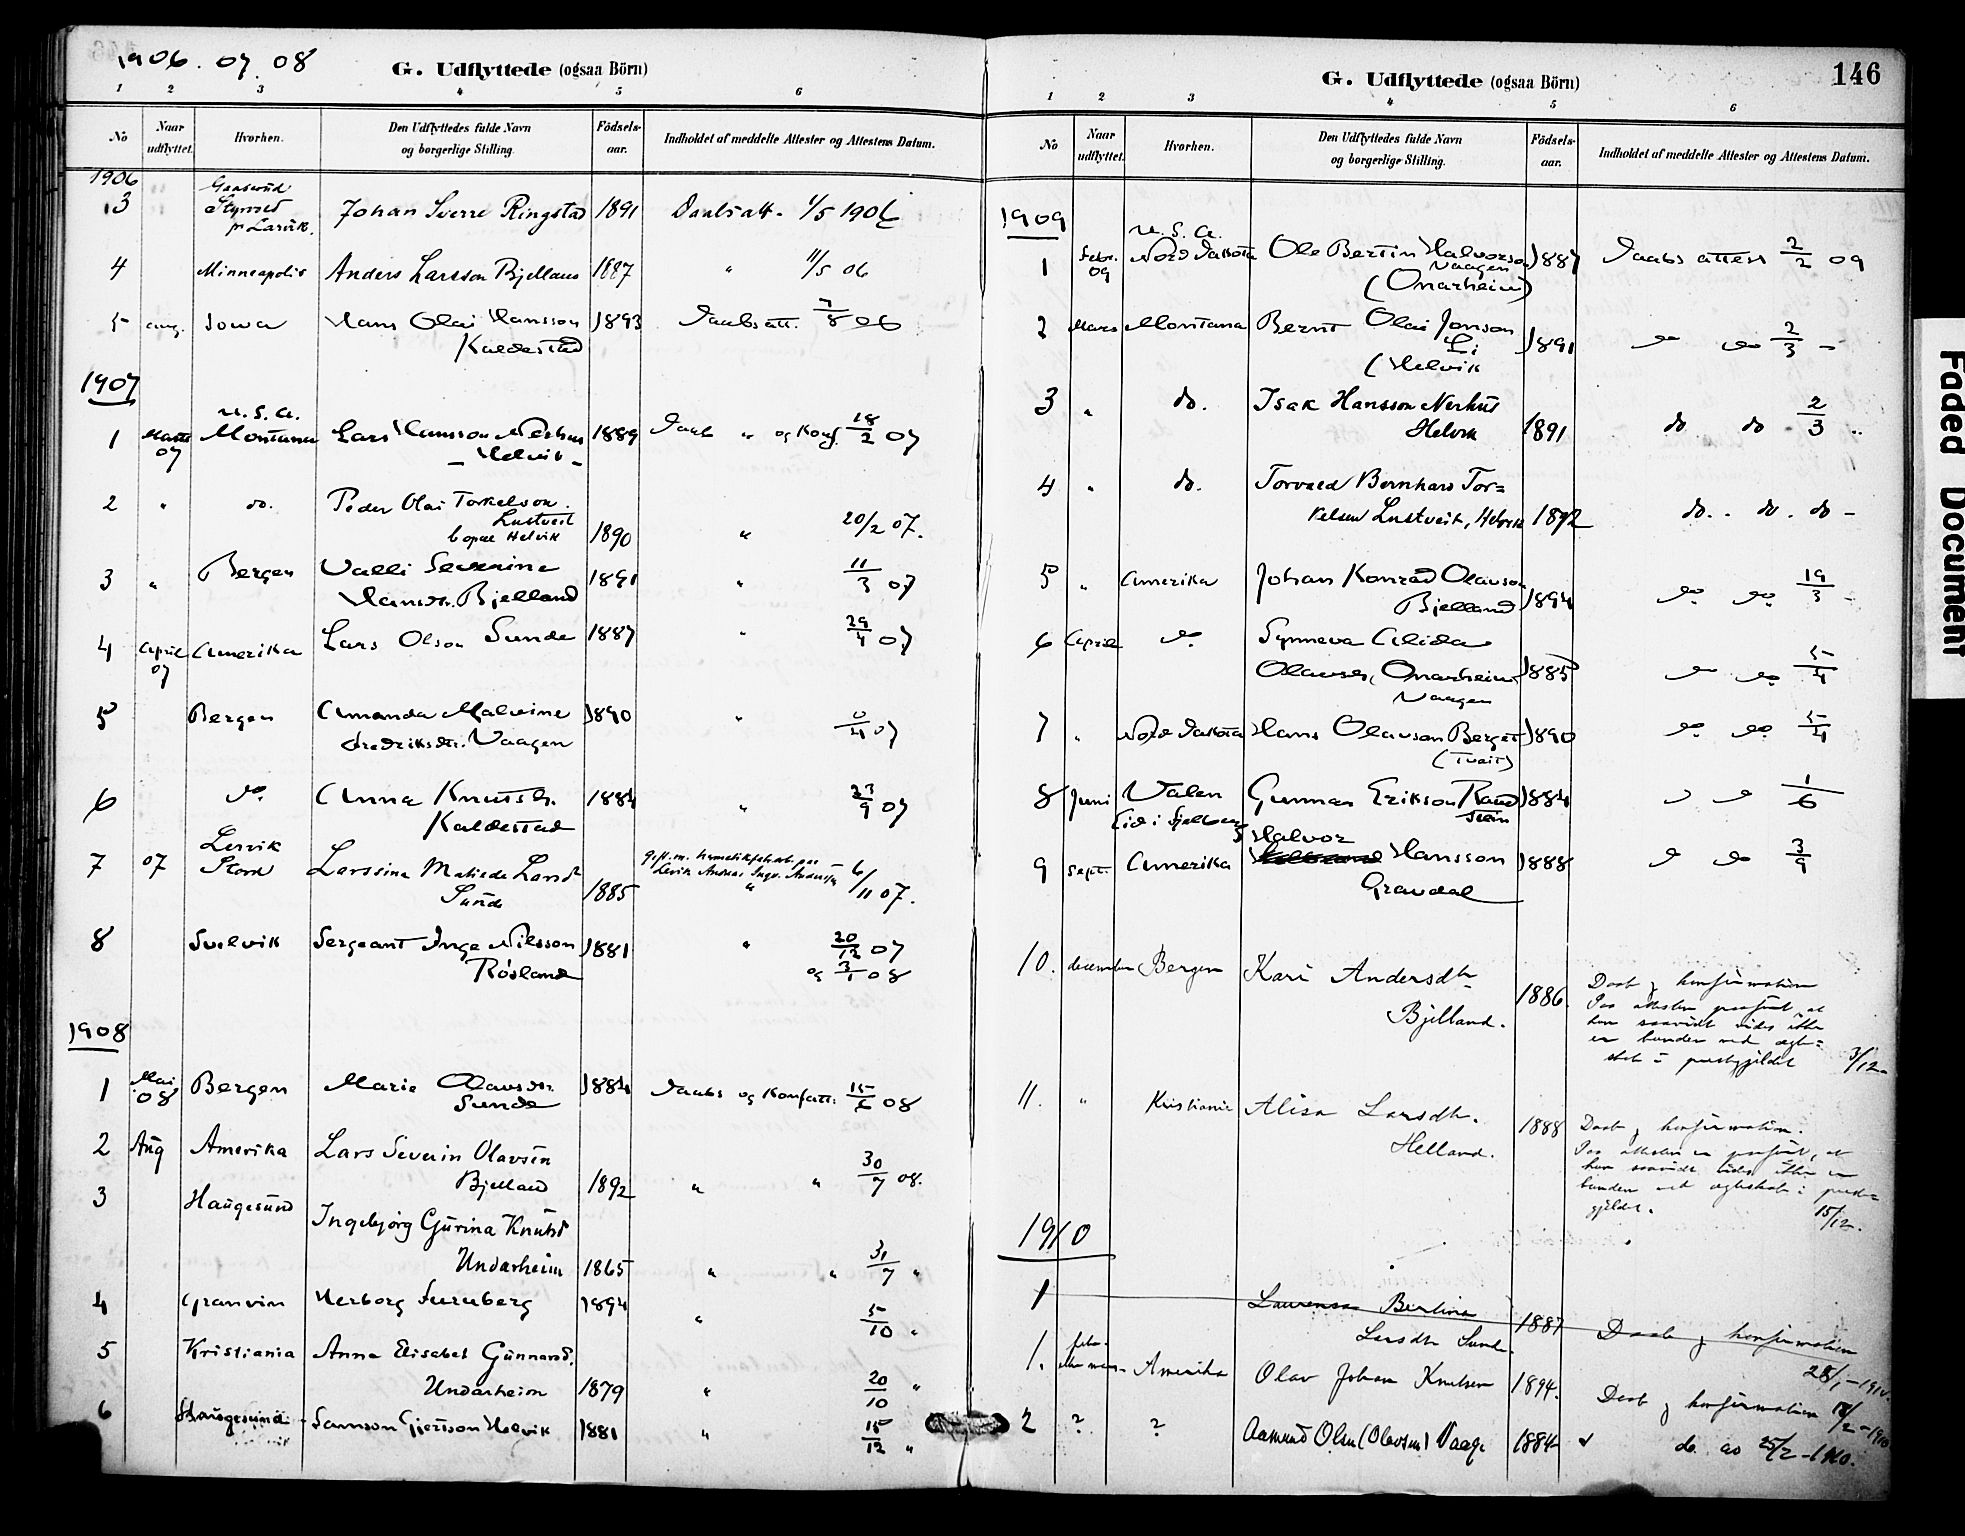 1906. 07. 08
G. Udflyttede (ogsaa Börn)
1 2 3 4 5 6
No
Naar udflyttet.
Hvorhen.
Den Udflyttedes fulde Navn og borgerlige Stilling.
Födsels-aar.
Indholdet af meddelte Attester og Attestens Datum.
1906
3 pr Larvik. Johan Sverre Ringstad 1891 Daabsatt. 1/5 1906
4 Minneapolis Anders Larsson Bjelland 1887 " 11/5 06
5 aug. Iowa Hans Olai Hansson 1893 Daabsatt. 7/8 06
Kaldestad
1907
U. S. A.
1 Marts Montana Lars Hansson Nerhus 1889 Daab " og Konf. 18/2 07
07 – Helvik –
2 " do. Peder Olai Torkelson
Lustveit
Helvik 1890 " 20/2 07.
3 " Bergen Valli Severine 1891 " 11/3 07
Hansdr. Bjelland
4 April Amerika Lars Olson Sunde 1887 " 29/4 07
07
5 Bergen Amanda Malvine 1890 " /4 07
Fredriksdtr. Vaagen
6 do. Anna Knutsdr. 1884 " 23/9 07
Kaldestad
Lervik
7 07 Stord Larssine Matilde Larsd 1885 " 6/11 07.
Sunde
8 Svelvik Sergeant Inge Nilsson 1881 " 20/12 07
Røsland og 3/1 08
1908
1 Mai Bergen Marie Olavsdtr. 1884 Daabs og Konfatt: 15/6 08
08 Sunde
2 Aug Amerika Lars Severin Olavsen
Bjelland 1892 " " 30/7 08.
3 Haugesund Ingebjørg Gurina Knutsd
Undarheim 1865 " " 31/7 "
4 Granvin Herborg Furuberg 1894 " 5/10 "
5 Kristiania Anna Elisabet Gunnarsd.
Undarheim 1879 " 20/10 "
6 Haugesund Samson Gjertson Helvik 1881 " 15/12 "
G. Udflyttede (ogsaa Börn)
146
1 2 3 4 5 6
No
Naar udflyttet.
Hvorhen.
Den Udflyttedes fulde Navn og borgerlige Stilling.
Födsels-aar.
Indholdet af meddelte Attester og Attestens Datum.
1909
U. S. A.
1 Febr. Nord Dakota Ole Bertin Halvorson 1887 Daabs attest 2/2 09
09 Vaagen
(Onarheim)
2 Mars Montana Bernt Olai Jonson 1891 do do 2/3 –
Li
(Helvik
3 " do. Isak Hansson Nerhus
Helvik 1891 do do 2/3 "
4 " do. Torvald Bernhard Tor=
kelsen Lustveit, Helvik 1892 do. . do. do –
5 " Amerika Johan Konrad Olavson
Bjelland 1894 do. do. 19/3 –
6 April do. Synneva Alida
Olavsdr, Onarheim 1885 do do. 5/4
Vaagen
7 " Nord Dakota Hans Olavson Berget 1890 do do. 5/4
(Tvait)
8 Juni Valen Gunnar Erikson Rand 1884 do do 1/6
Eid i Fjelberg stein
9 Sept. Amerika Halvor Hansson 1888 do do 3/9
Gravdal
10. december Bergen Kari Andersdtr
Bjelland. 1886. Daab & konfirmation
Paa attesten paaført, at
hun saavidt vides ikke
er bunden ved ægte=
skab i prestegjeldet 3/12.
11. " Kristiania Alisa Larsdtr.
Helland. 1888 Daab & konfirmation.
Paa attesten er paaført, at
hun saavidt vides ikke er
bunden ved ægteskab i preste=
gjeldet. 15/12.
1910
1 Laurensa Bertine
Larsdtr Sunde. 1887 Daab & konfirmation
28/1 – 1910.
1. Amerika Olav Johan Knutsen 1894. Daab & konfirmation /2 – 1910
2 ? ? Aamund Olsen (Olavsen) Vaage 1884 do ao 25/2 – 1910.
Faded Document